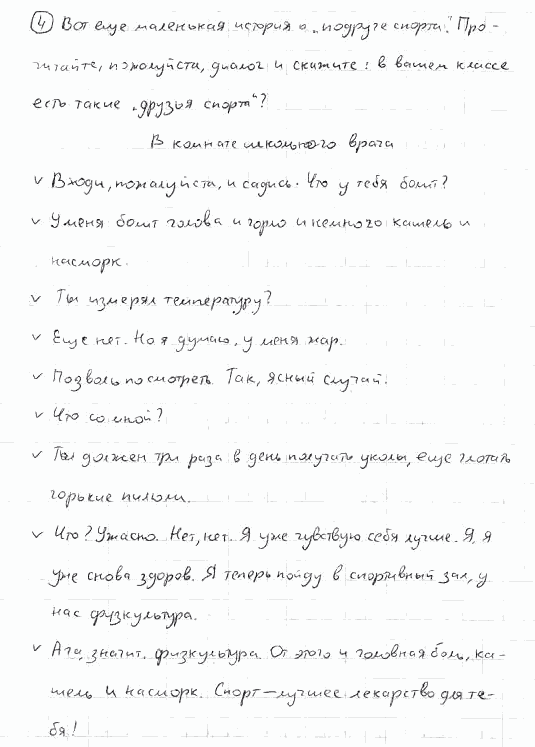 4 Вот еще маленькая история о „подруге спорта“. Про-
читайте, пожалуйста, диалог и скажите: в вашем классе
есть такие „друзья спорта“?
В комнате школьного врача
v Входи, пожалуйста, и садись. Что у тебя болит?
v У меня болит голова и горло и немного кашель и
насморк.
v Ты измерял температуру?
v Еще нет. Но я думаю, у меня жар.
v Позволь посмотреть. Так, ясный случай.
v Что со мной?
v Ты должен три раза в день получать уколы, еще глотать
горькие пилюли.
v Что? Ужасно. Нет, нет. Я уже чувствую себя лучше. Я, я
уже снова здоров. Я теперь пойду в спортивный зал, у
нас физкультура.
v Ага, значит, физкультура. От этого и головная боль, ка-
шель и насморк. Спорт – лучшее лекарство для те-
бя!